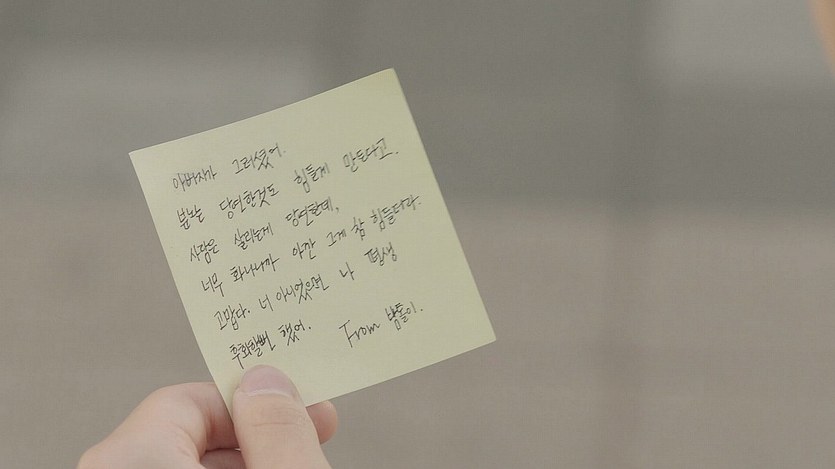 아버지가 그러셨어.
분노는 당연한것도 힘들게 만든다고.
사람은 살리는게 당연한데,
너무 화나니까 아깐 그게 참 힘들더라.
고맙다. 너 아니었으면 나 평생
후회할뻔 했어. From 남돌이.